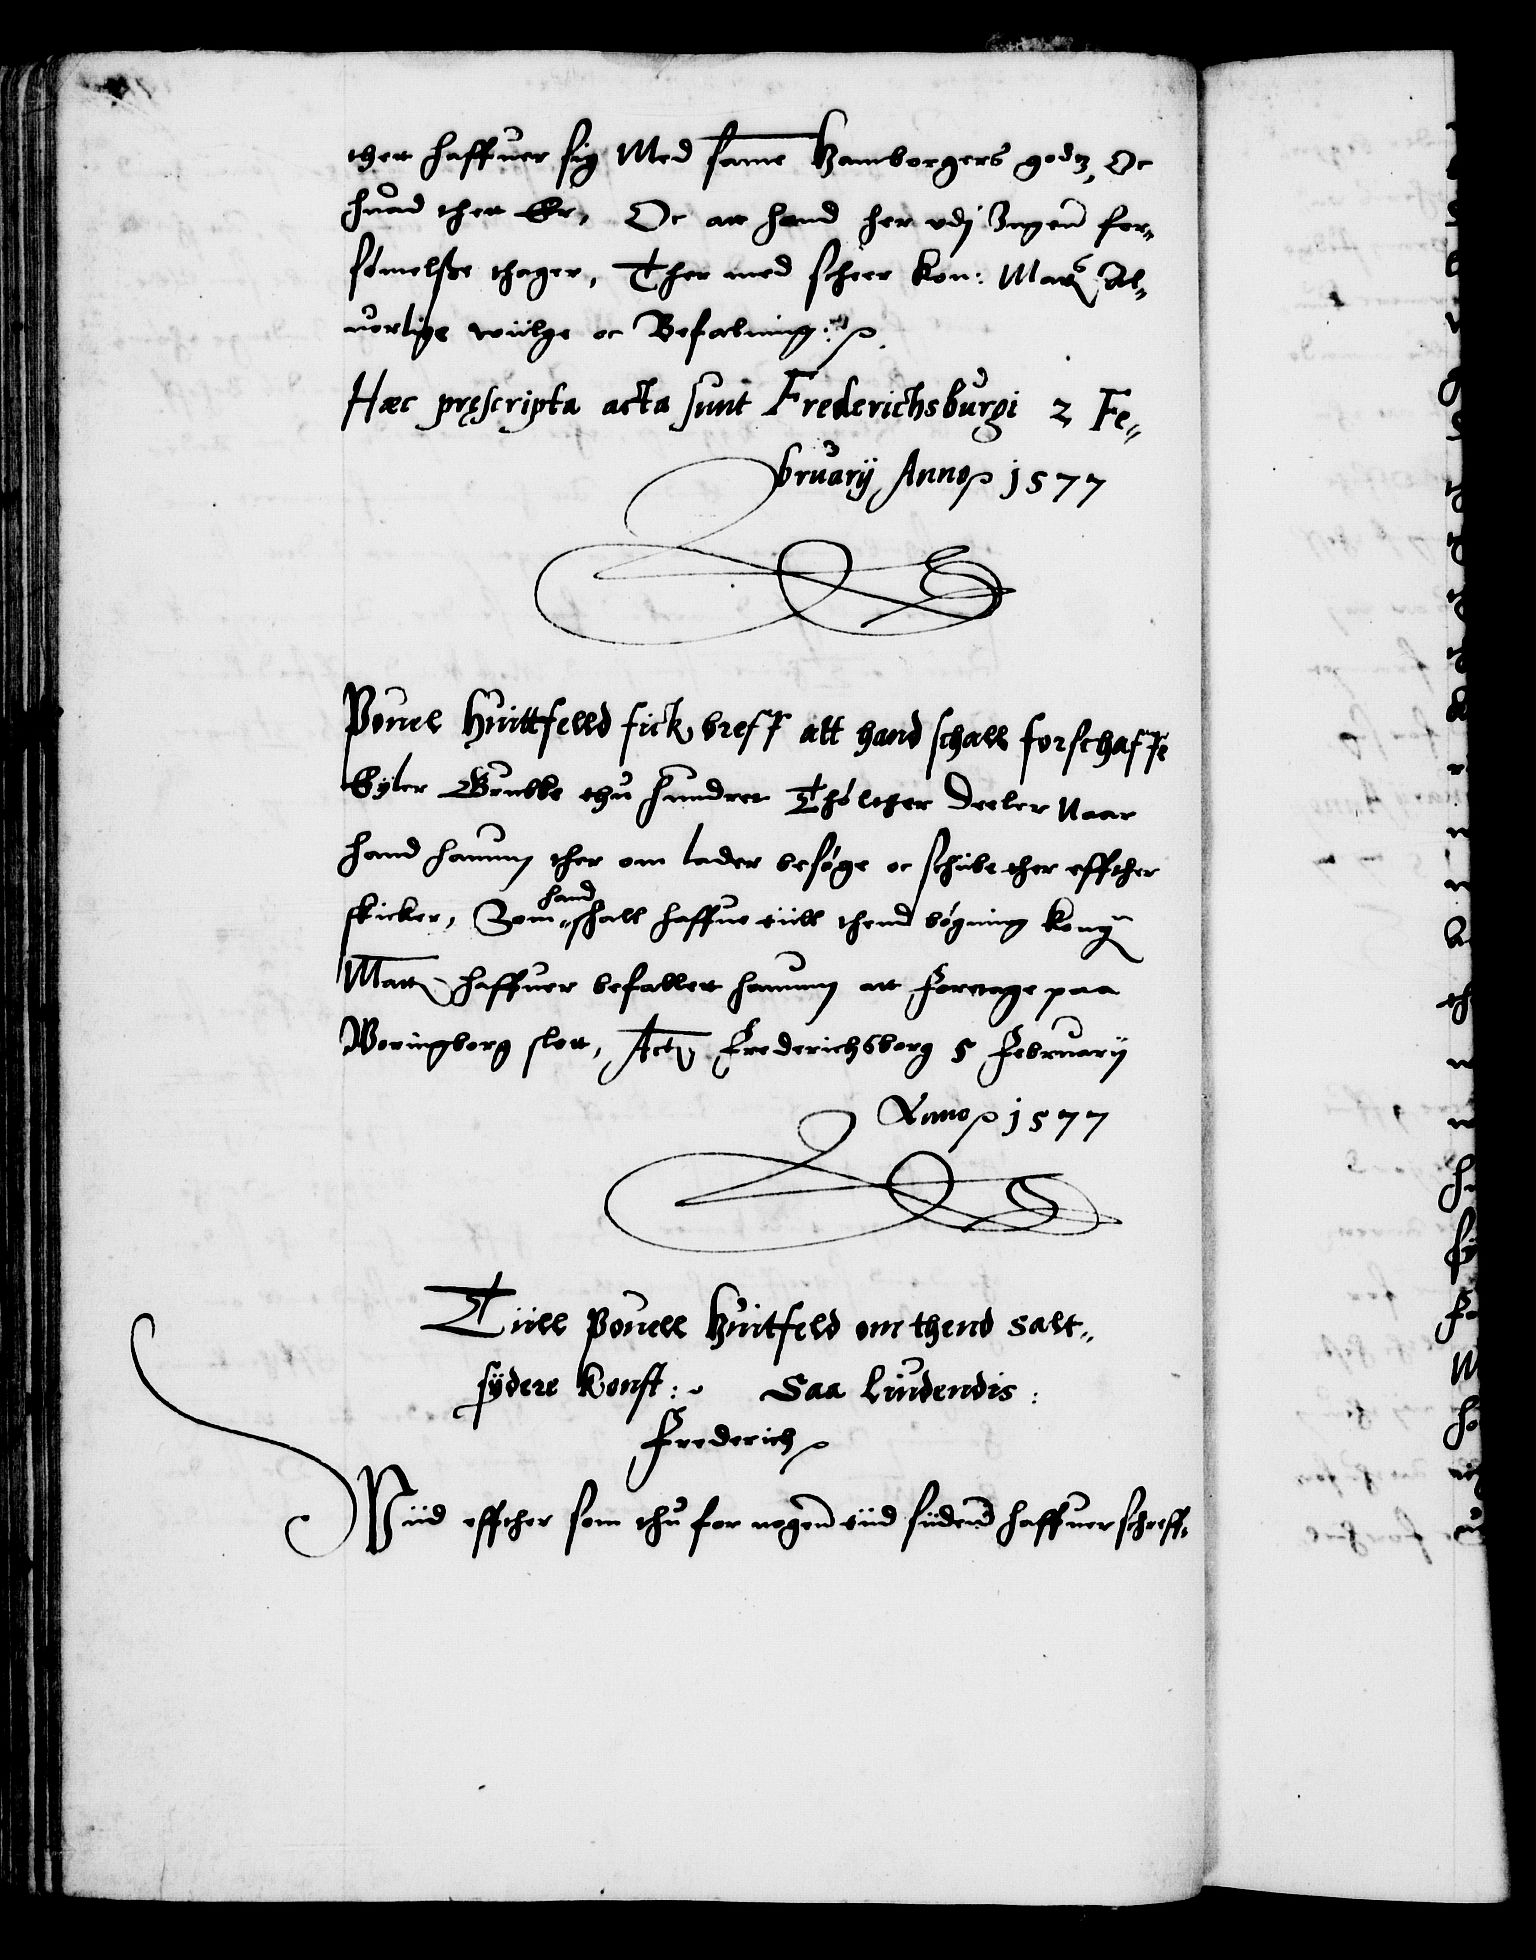 thett haffuer sig Med same Hamborgers godtz, Oc
huad thett Er, Oc att hand her vdj Ingen for„
sømelsse thager, Ther med scheer kon: Matts Al„
uorlige wiilge oc Befalning:
Hæc pręscripta acta sunt Frederichsburgi 2 Fe„
bruarij Anno 1577
Pouel Huittfelld fick breff att hand schall forschaffe
Eyler Grubbe thu hundret Thóltther Deeler Naar
hand hannum ther om lader besøge oc schiibe ther effther
skicker, Som hand shall haffue tiill thend bögning kong
Matt haffuer befallet hannum att Foretage paa
Woringborg slott, Act Frederichsborg 5 February
Anno 1577
Tiill Pouell Huitfeld om thend salt„
sydere konst: Saa Liudendis:
Frederich
Wiid effther som thu for nogen tiid siiden haffuer schreff„